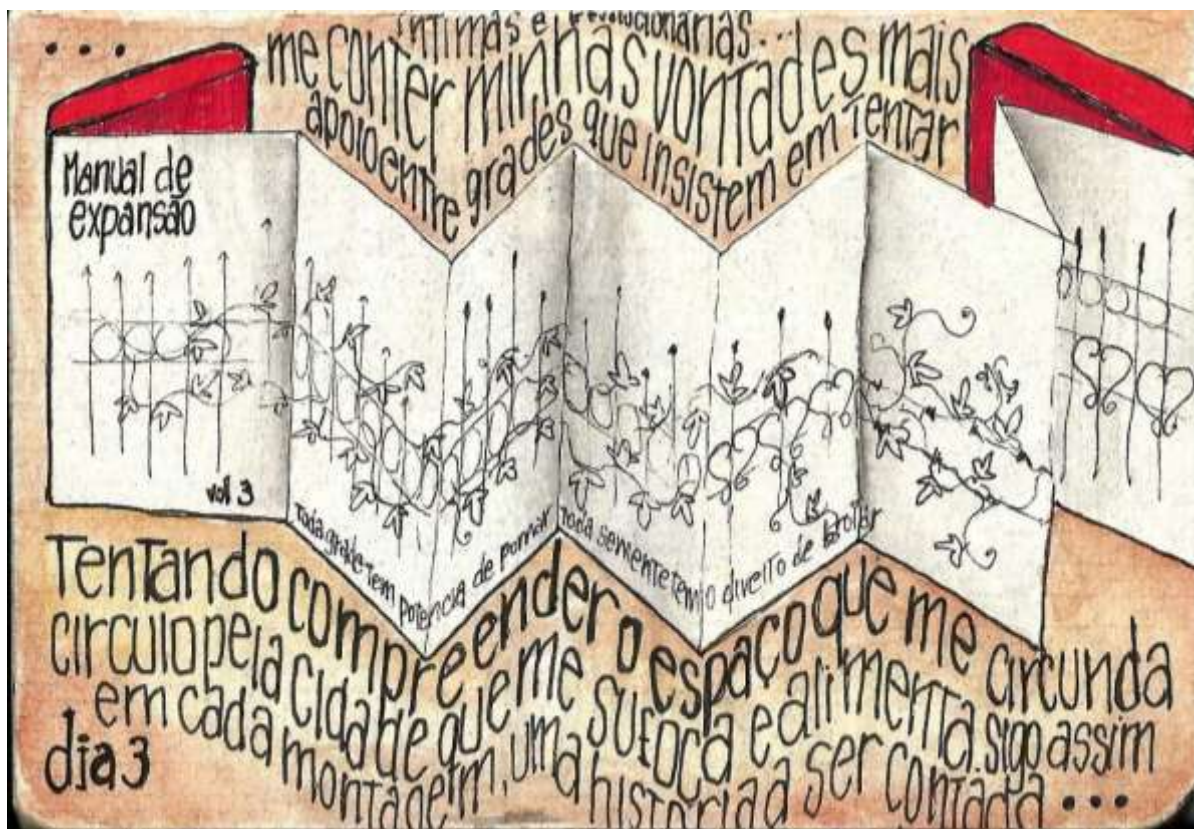 ...
intimas e revolucionárias...
me conter minhas vontades mais
apoio entre grades que insistem em tentar
Manual de
expansão
vol 3
Toda grade tem potência de pomar Toda semente tem o direito de brotar
Tentando compreender o espaço que me circunda
circulo pela cidade que me sufoca e alimenta. sigo assim
em cada montagem, uma história a ser contada ...
dia 3